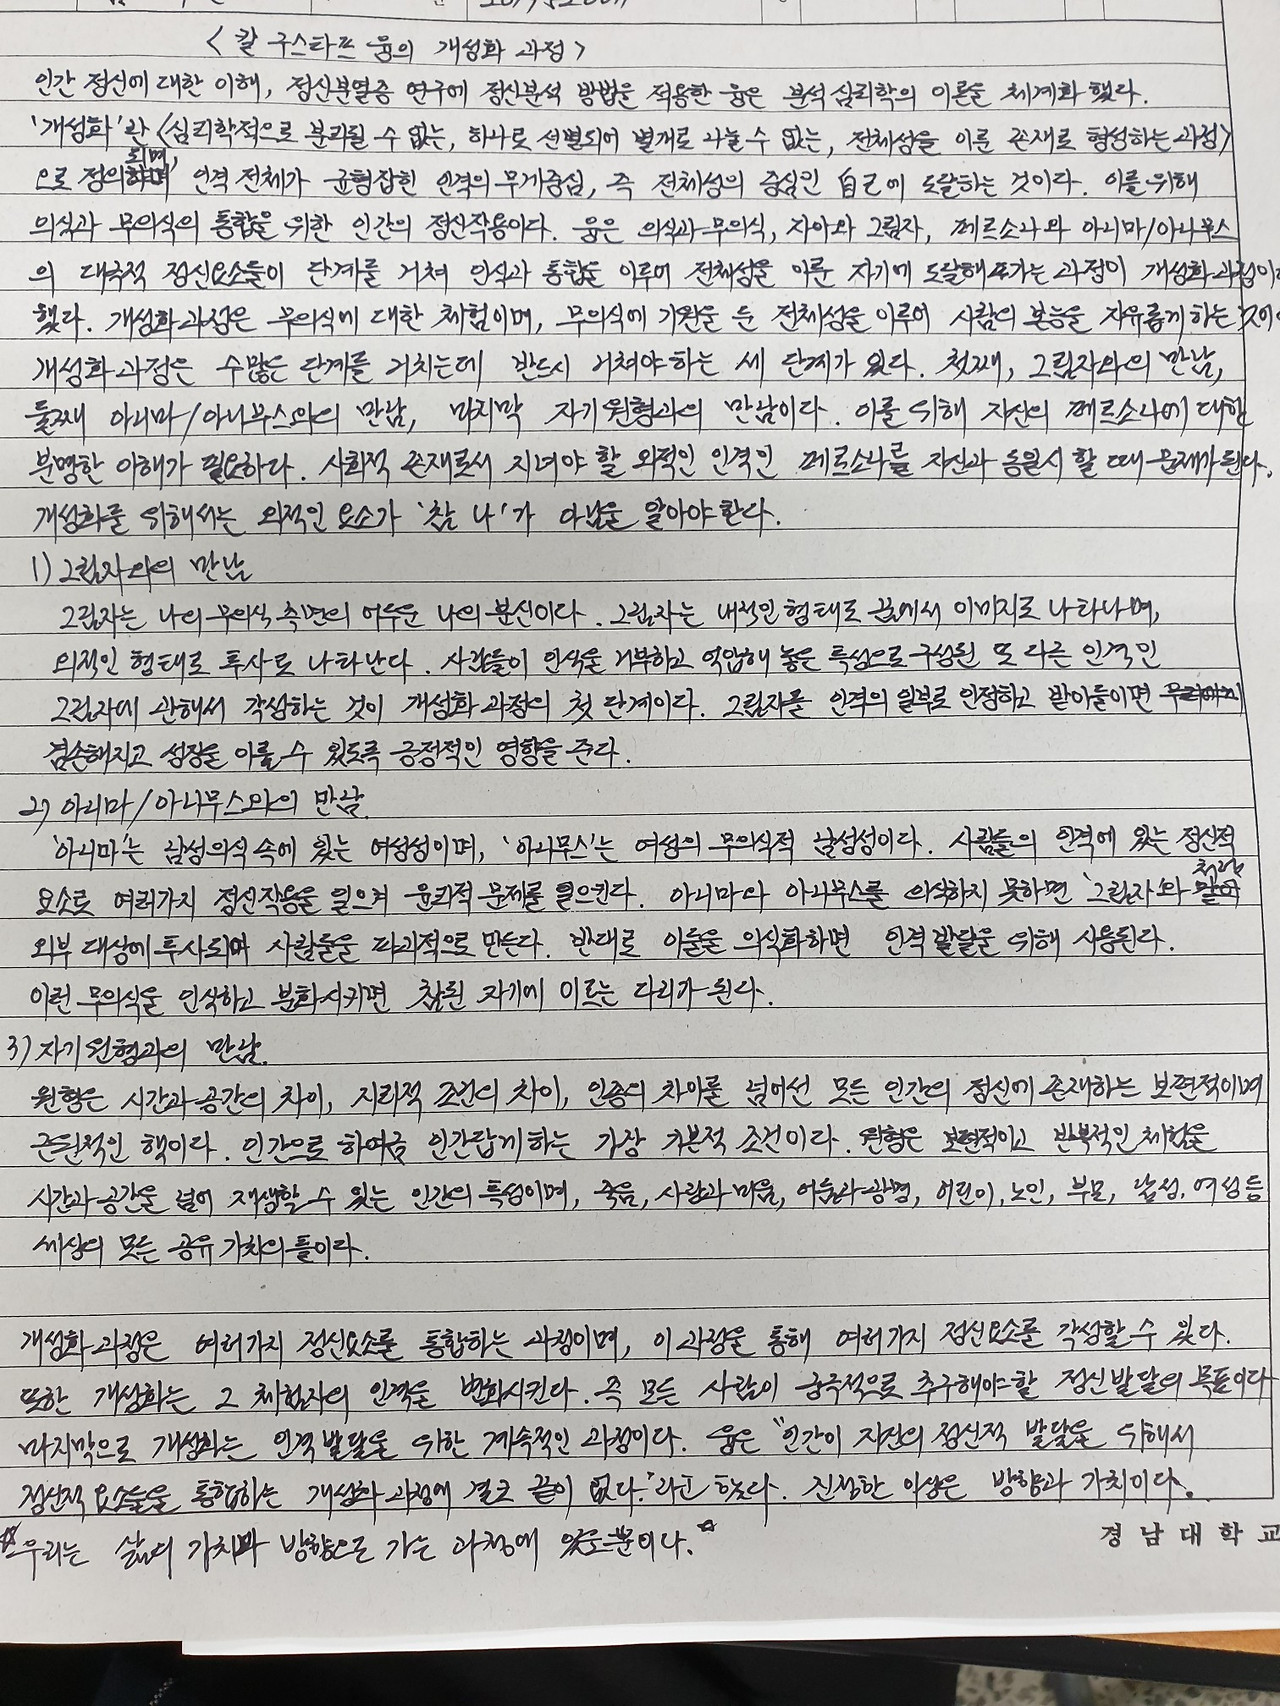 < 칼 구스타프 융의 개성화 과정 >
인간 정신에 대한 이해, 정신분열증 연구에 정신분석 방법을 적용한 융은 분석 심리학의 이론을 체계화 했다.
'개성화'란 <심리학적으로 분리될 수 없는, 하나로 선별되어 별개로 나눌 수 없는, 전체성을 이룬 존재로 형성하는 과정>
으로 정의되며, 인격 전체가 균형잡힌 인격의 무게중심, 즉 전체성의 중심인 自己에 도달하는 것이다. 이를 위해
의식과 무의식의 통합을 위한 인간의 정신작용이다. 융은 의식과 무의식, 자아와 그림자, 페르소나와 아니마/아니무스
의 대극적 정신요소들이 단계를 거쳐 인식과 통합을 이루며 전체성을 이룬 자기에 도달해 가는 과정이 개성화 과정이라
했다. 개성화 과정은 무의식에 대한 체험이며, 무의식에 기원을 둔 전체성을 이루어 사람의 본능을 자유롭게 하는 것이
개성화 과정은 수많은 단계를 거치는데 반드시 거쳐야 하는 세 단계가 있다. 첫째, 그림자와의 만남,
둘째 아니마/아니무스와의 만남, 마지막 자기 원형과의 만남이다. 이를 위해 자신의 페르소나에 대한
분명한 이해가 필요하다. 사회적 존재로서 지녀야 할 외적인 인격인 페르소나를 자신과 동일시 할 때 문제가 된다.
개성화를 위해서는 외적인 요소가 '참 나'가 아님을 알아야 한다.
1) 그림자와의 만남
그림자는 나의 무의식 측면의 어두운 나의 분신이다. 그림자는 내적인 형태로 꿈에서 이미지로 나타나며,
외적인 형태로 투사로 나타난다. 사람들이 인식을 거부하고 억압해 놓은 특성으로 구성된 또 다른 인격인
그림자에 관해서 각성하는 것이 개성화 과정의 첫 단계이다. 그림자를 인격의 일부로 인정하고 받아들이면
겸손해지고 성장을 이룰 수 있도록 긍정적인 영향을 준다.
2) 아니마/아니무스와의 만남
'아니마'는 남성의식 속에 있는 여성성이며, '아니무스'는 여성의 무의식적 남성성이다. 사람들의 인격에 있는 정신적
요소로 여러가지 정신작용을 일으켜 윤리적 문제를 일으킨다. 아니마와 아니무스를 의식하지 못하면 '그림자'와 처럼
외부 대상에 투사되며 사람들을 파괴적으로 만든다. 반대로 이들을 의식화하면 인격 발달을 위해 사용된다.
이런 무의식을 인식하고 분화시키면 참된 자기에 이르는 다리가 된다.
3) 자기 원형과의 만남.
원형은 시간과 공간의 차이, 지리적 조건의 차이, 인종의 차이를 넘어선 모든 인간의 정신에 존재하는 보편적이며
근원적인 핵이다. 인간으로 하여금 인간답게 하는 가장 기본적 조건이다. 원형은 보편적이고 반복적인 체험을
시간과 공간을 넘어 재생할 수 있는 인간의 특성이며, 죽음, 사랑과 미움, 어둠과 광명, 어린이, 노인, 부모, 남성, 여성 등
세상의 모든 공유 가치의 틀이다.
개성화 과정은 여러가지 정신요소를 통합하는 과정이며, 이 과정을 통해 여러가지 정신요소를 각성할 수 있다.
또한 개성화는 그 체험자의 인격을 변화시킨다. 즉 모든 사람이 궁극적으로 추구해야 할 정신발달의 목표이다
마지막으로 개성화는 인격 발달을 위한 계속적인 과정이다. 융은 "인간이 자신의 정신적 발달을 위해서
정신적 요소들을 통합하는 개성화 과정에 결코 끝이 없다."라고 하였다. 진정한 이상은 방향과 가치이다.
우리는 삶의 가치와 방향으로 가는 과정에 있을 뿐이다.
경남대학교